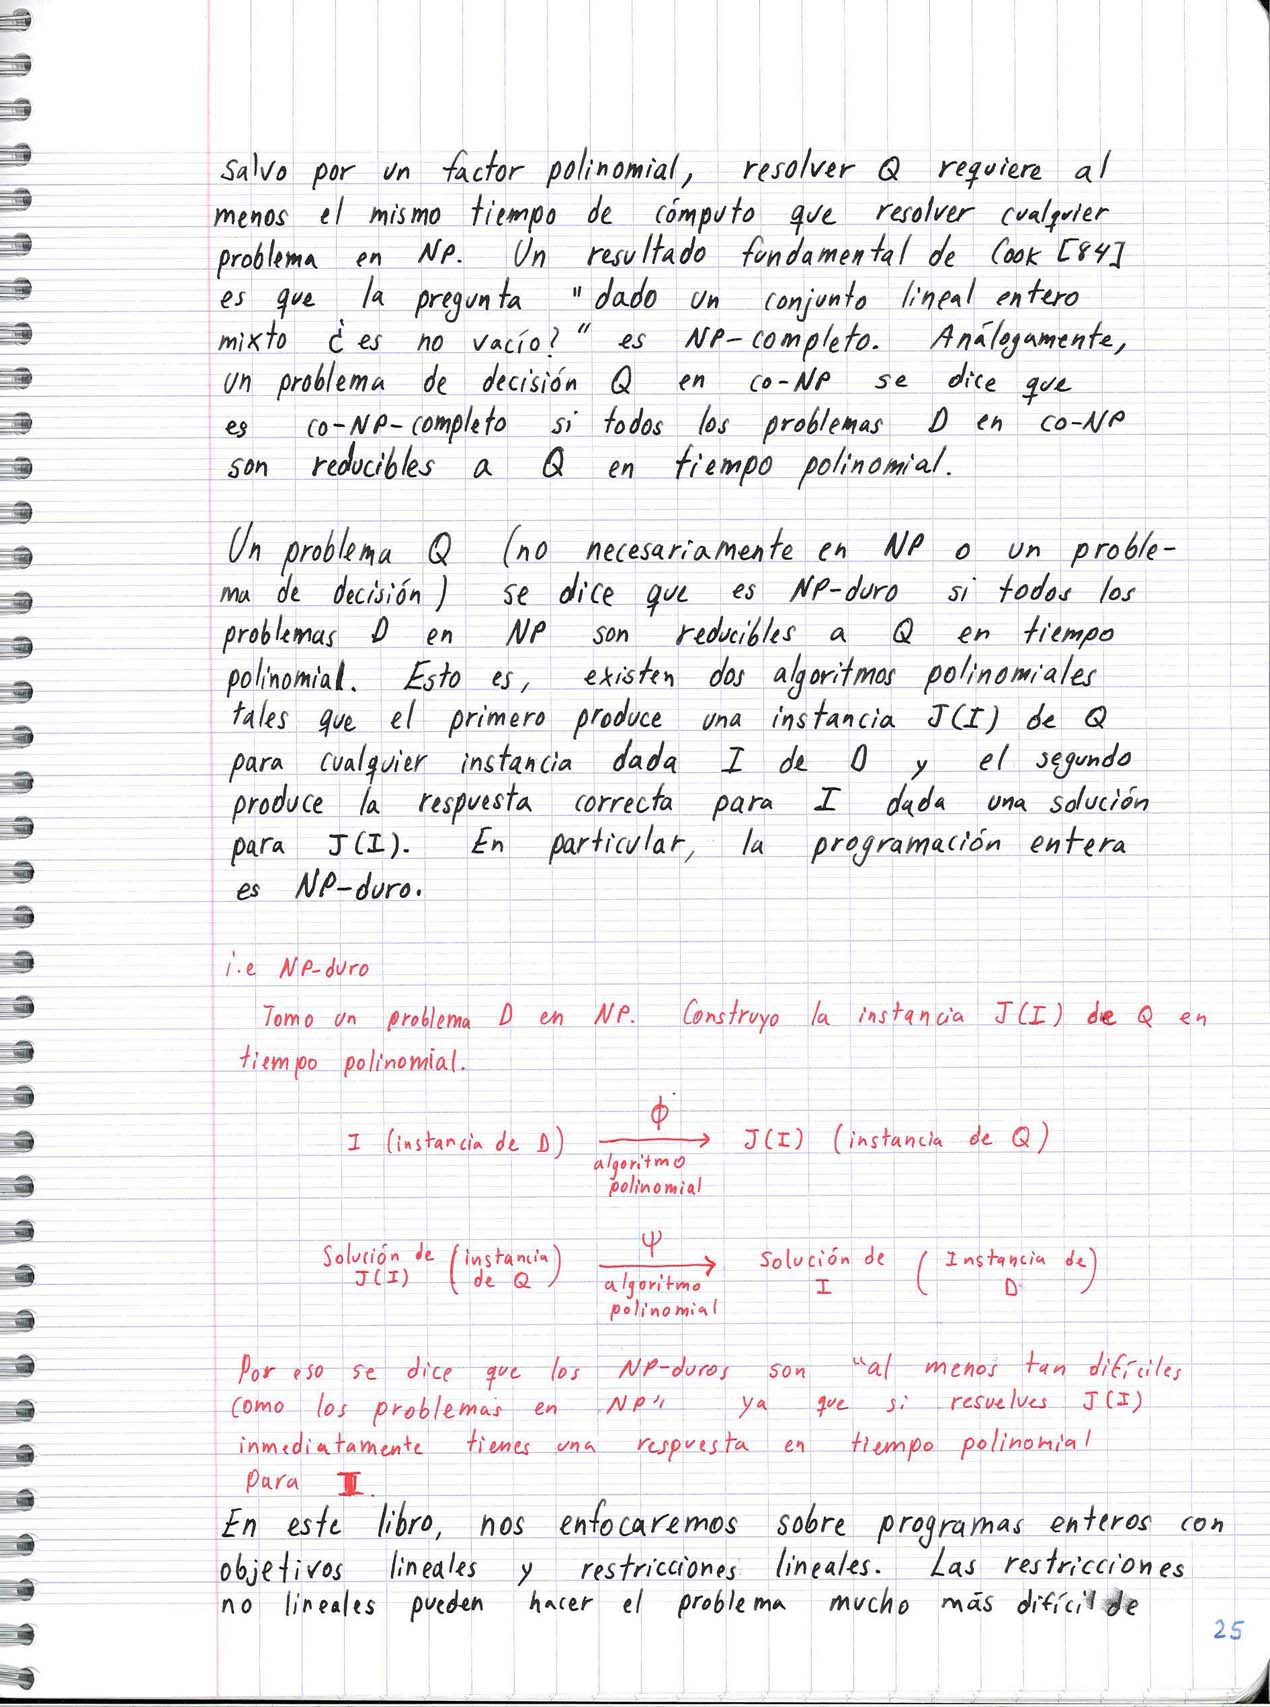 salvo por un factor polinomial, resolver Q requiere al
menos el mismo tiempo de cómputo que resolver cualquier
problema en NP. Un resultado fundamental de Cook [84]
es que la pregunta "dado un conjunto lineal entero
mixto ¿es no vacío?" es NP-completo. Análogamente,
un problema de decisión Q en co-NP se dice que
es co-NP-completo si todos los problemas D en co-NP
son reducibles a Q en tiempo polinomial.
Un problema Q (no necesariamente en NP o un proble-
ma de decisión) se dice que es NP-duro si todos los
problemas D en NP son reducibles a Q en tiempo
polinomial. Esto es, existen dos algoritmos polinomiales
tales que el primero produce una instancia J(I) de Q
para cualquier instancia dada I de D y el segundo
produce la respuesta correcta para I dada una solución
para J(I). En particular, la programación entera
es NP-duro.
i.e NP-duro
Tomo un problema D en NP. Construyo la instancia J(I) de Q en
tiempo polinomial.
ϕ
I (instancia de D) → J(I) (instancia de Q)
algoritmo
polinomial
ψ
Solución de (instancia) → Solución de (Instancia de)
J(I) de Q I D
algoritmo
polinomial
Por eso se dice que los NP-duros son "al menos tan difíciles
como los problemas en NP" ya que si resuelves J(I)
inmediatamente tienes una respuesta en tiempo polinomial
para I.
En este libro, nos enfocaremos sobre programas enteros con
objetivos lineales y restricciones lineales. Las restricciones
no lineales pueden hacer el problema mucho más difícil de
25